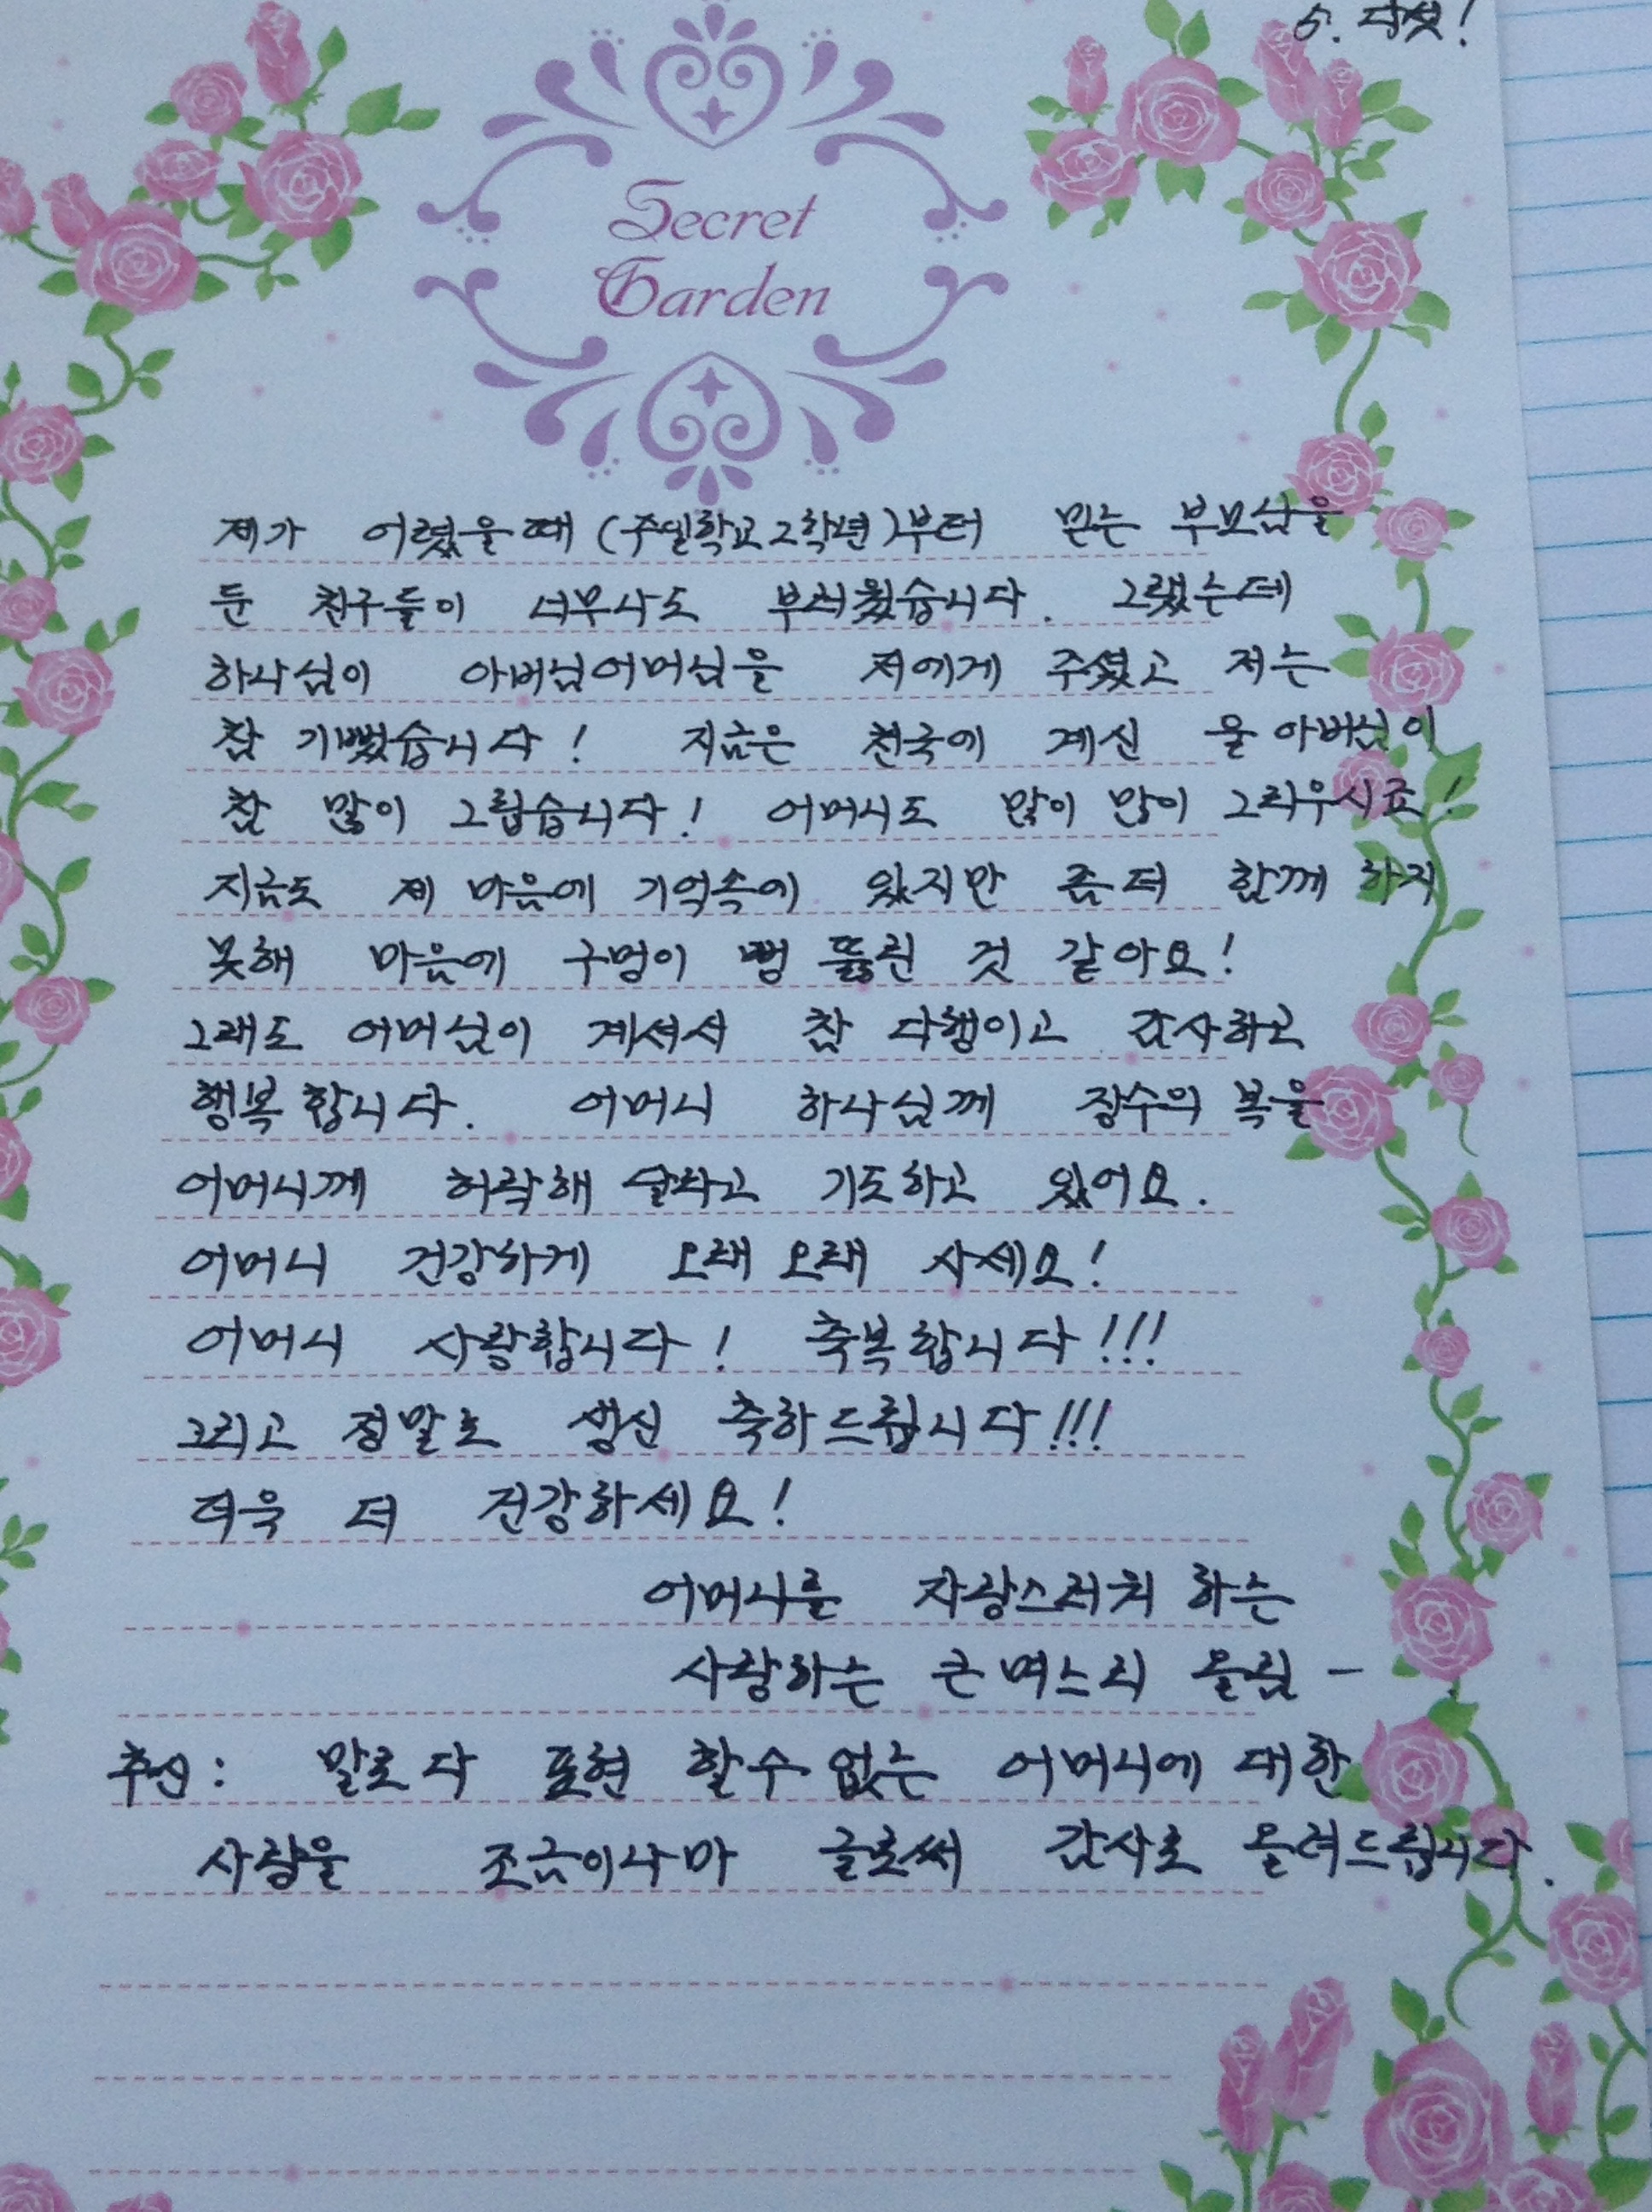 5. 다섯!
Secret
Garden
제가 어렸을때 (주일학교 2학년)부터 믿는 부모님을
둔 친구들이 너무나도 부러웠습니다. 그랬는데
하나님이 아버님어머님을 저에게 주셨고 저는
참 기뻤습니다! 지금은 천국에 계신 울 아버님이
참 많이 그립습니다! 어머니도 많이 많이 그리우시죠!
지금도 제 마음에 기억속에 있지만 좀 더 함께 하지
못해 마음에 구멍이 뻥 뚫린 것 같아요!
그래도 어머님이 계셔서 참 다행이고 감사하고
행복합니다. 어머니 하나님께 장수의 복을
어머니께 허락해 달라고 기도하고 있어요.
어머니 건강하게 오래 오래 사세요!
어머니 사랑합니다! 축복합니다!!!
그리고 정말로 생신 축하드립니다!!!
더욱 더 건강하세요!
어머니를 자랑스러워 하는
사랑하는 큰 며느리 올림 -
추신: 말로 다 표현 할 수 없는 어머니에 대한
사랑을 조금이나마 글로써 감사로 올려드립니다.